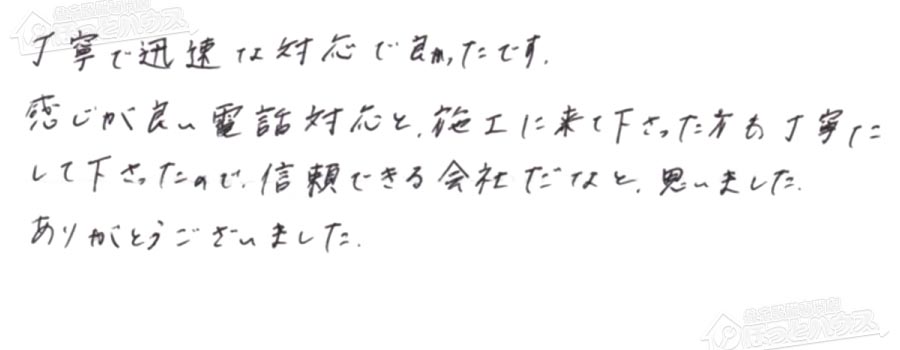 丁寧で迅速な対応で良かったです.
感じが良い電話対応と、施工に来て下さった方も丁寧に
して下さったので、信頼できる会社だなと、思いました.
ありがとうございました.
ほっとハウス
ほっとハウス